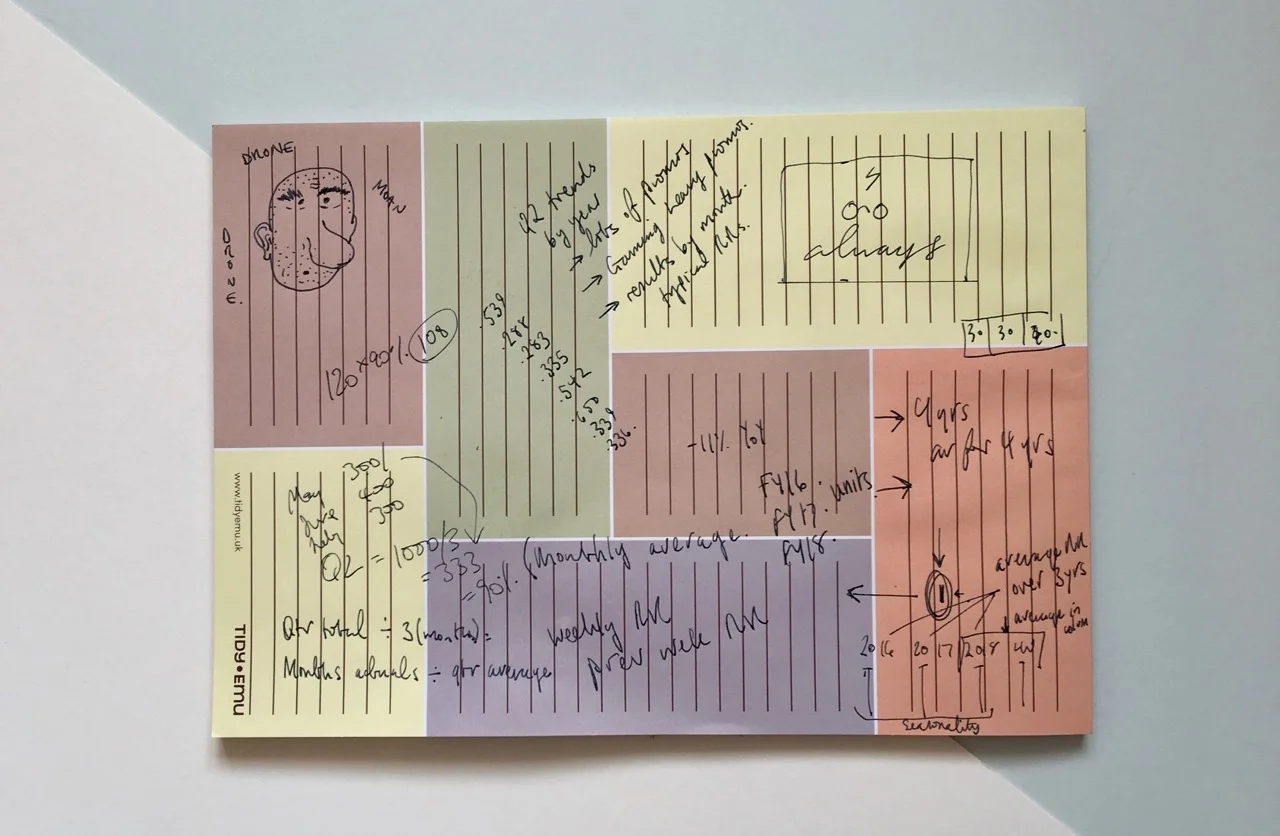 DRONE
MOAN
DRONE.
120 x 90%. 108
Q2 trends
by year
→ lots of promos
→ Gaming heavy promos.
→ results by month.
typical RRs.
.539
.288
.283
.335
.542
.650
.339
.336.
always
30 30 40.
-11% YoY
FY16.
FY17. units
FY18.
→ 4 yrs
av for 4 yrs
→
www.tidyemu.uk
TIDY•EMU
300/
May 400
June 300
July
Q2 = 1000/3
= 333
= 90%. (monthly average.
Qtr total ÷ 3 (months) =
Months actuals ÷ qtr average
weekly RR
prev week RR
average RR
over 3 yrs
average in
2016 2017 2018
seasonality